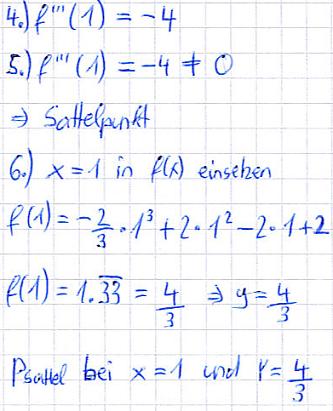 4.) f'''(1) = -4
5.) f'''(1) = -4 ≠ 0
⇒ Sattelpunkt
6.) x = 1 in f(x) einsetzen
f(1) = -2/3 · 1³ + 2 · 1² - 2 · 1 + 2
f(1) = 1.3̅3̅ = 4/3 ⇒ y = 4/3
Psattel bei x = 1 und Y = 4/3